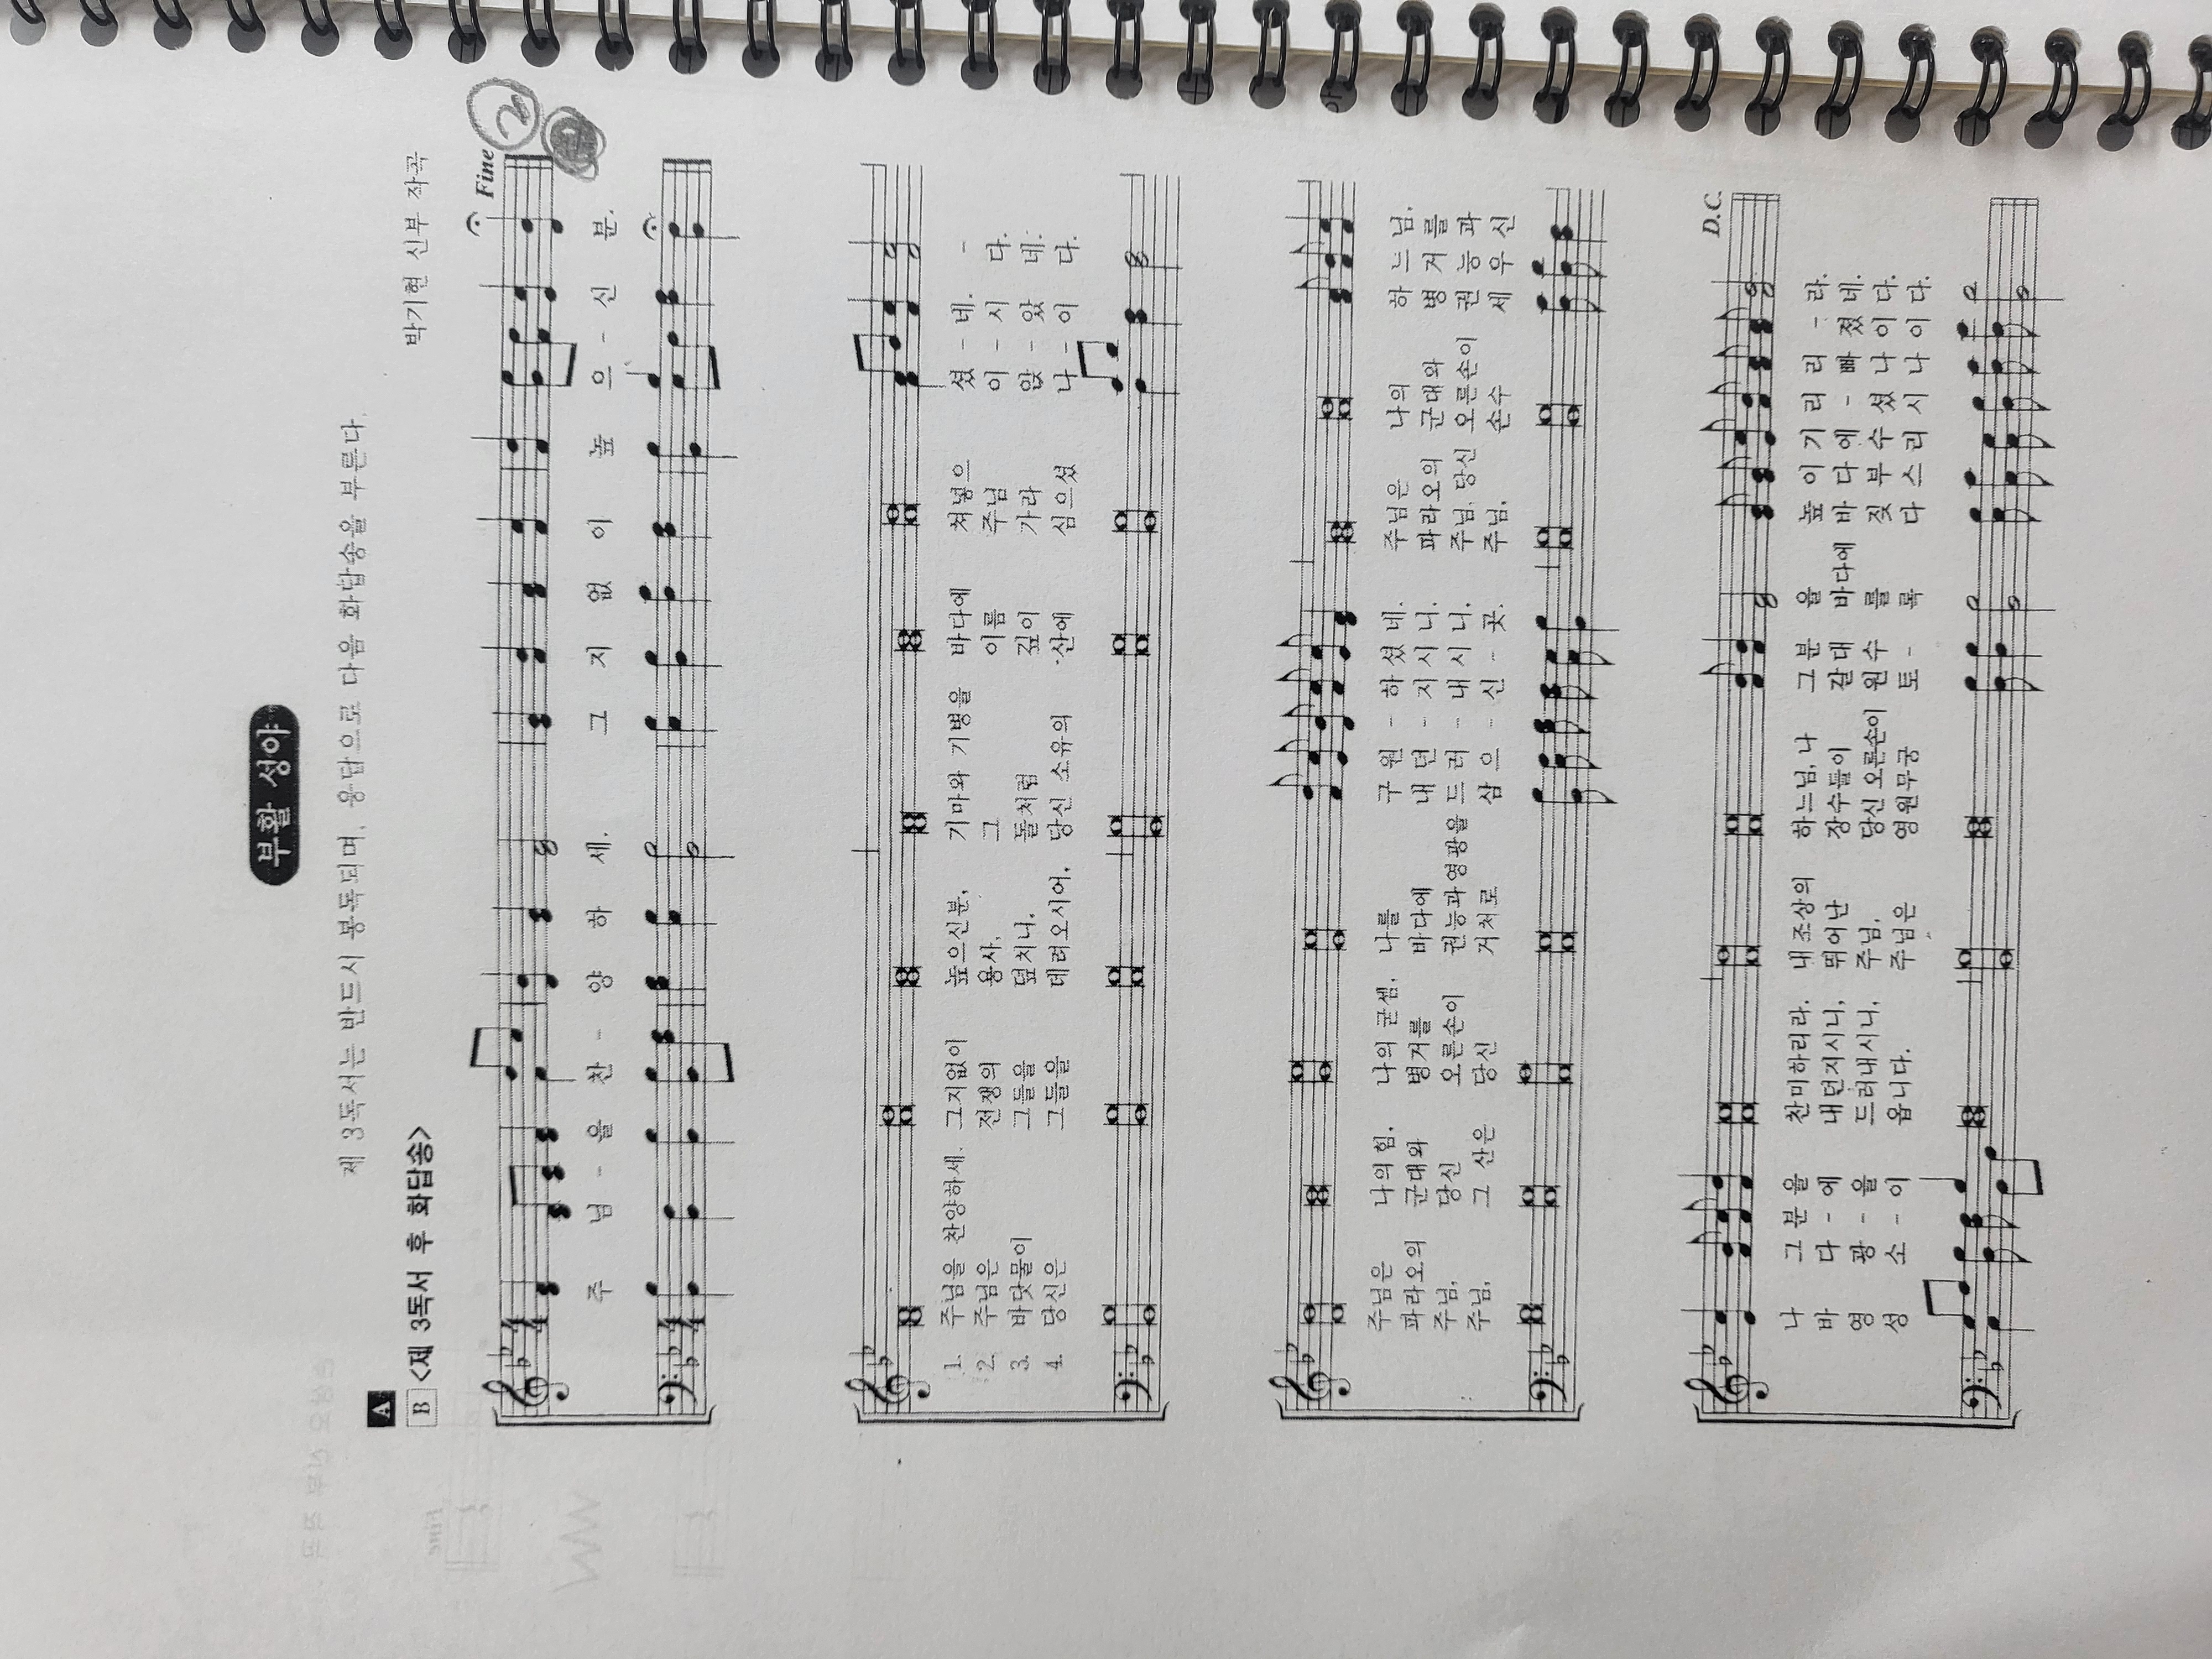 부활 성야
제 3독서는 반드시 봉독되며, 응답으로 다음 화답송을 부른다.
A
B <제 3독서 후 화답송>
박기현 신부 작곡
Fine
2
주 님 - 을 찬 - 양 하 세. 그 지 없 이 높 으 - 신 분.
1. 주님을 찬양하세. 그지없이 높으신분, 기마와 기병을 바다에 처넣으 셨 - 네. -
2. 주님은 전쟁의 용사, 그 이름 주님 이 - 시 다.
3. 바닷물이 그들을 덮치니, 돌처럼 깊이 가라 앉 - 았 네.
4. 당신은 그들을 데려오시어, 당신 소유의 산에 심으셨 나 - 이 다.
주님은 나의힘, 나의 굳셈, 나를 구 원 - 하 셨 네. 주님은 나의 하 느 님.
파라오의 군대와 병거를 바다에 내 던 - 지 시 니. 파라오의 군대와 병 거 를
주님, 당신 오른손이 권능과영광을 드 러 - 내 시 니. 주님, 당신 오른손이 권 능 과
주님, 그 산은 당신 거처로 삼 으 - 신 - 곳. 주님, 손수 세 우 신
D.C.
나 그 분 을 찬미하리라. 내조상의 하느님,나 그 분 을 높 이 기 리 리 - 라.
바 다 - 에 내던지시니, 뛰어난 장수들이 갈 대 바다에 바 다 에 - 빠 졌 네.
영 광 - 을 드러내시니, 주님, 당신오른손이 원 수 를 짓 부 수 셨 나 이 다.
성 소 - 이 옵니다. 주님은 영원무궁 토 - 록 다 스 리 시 나 이 다.